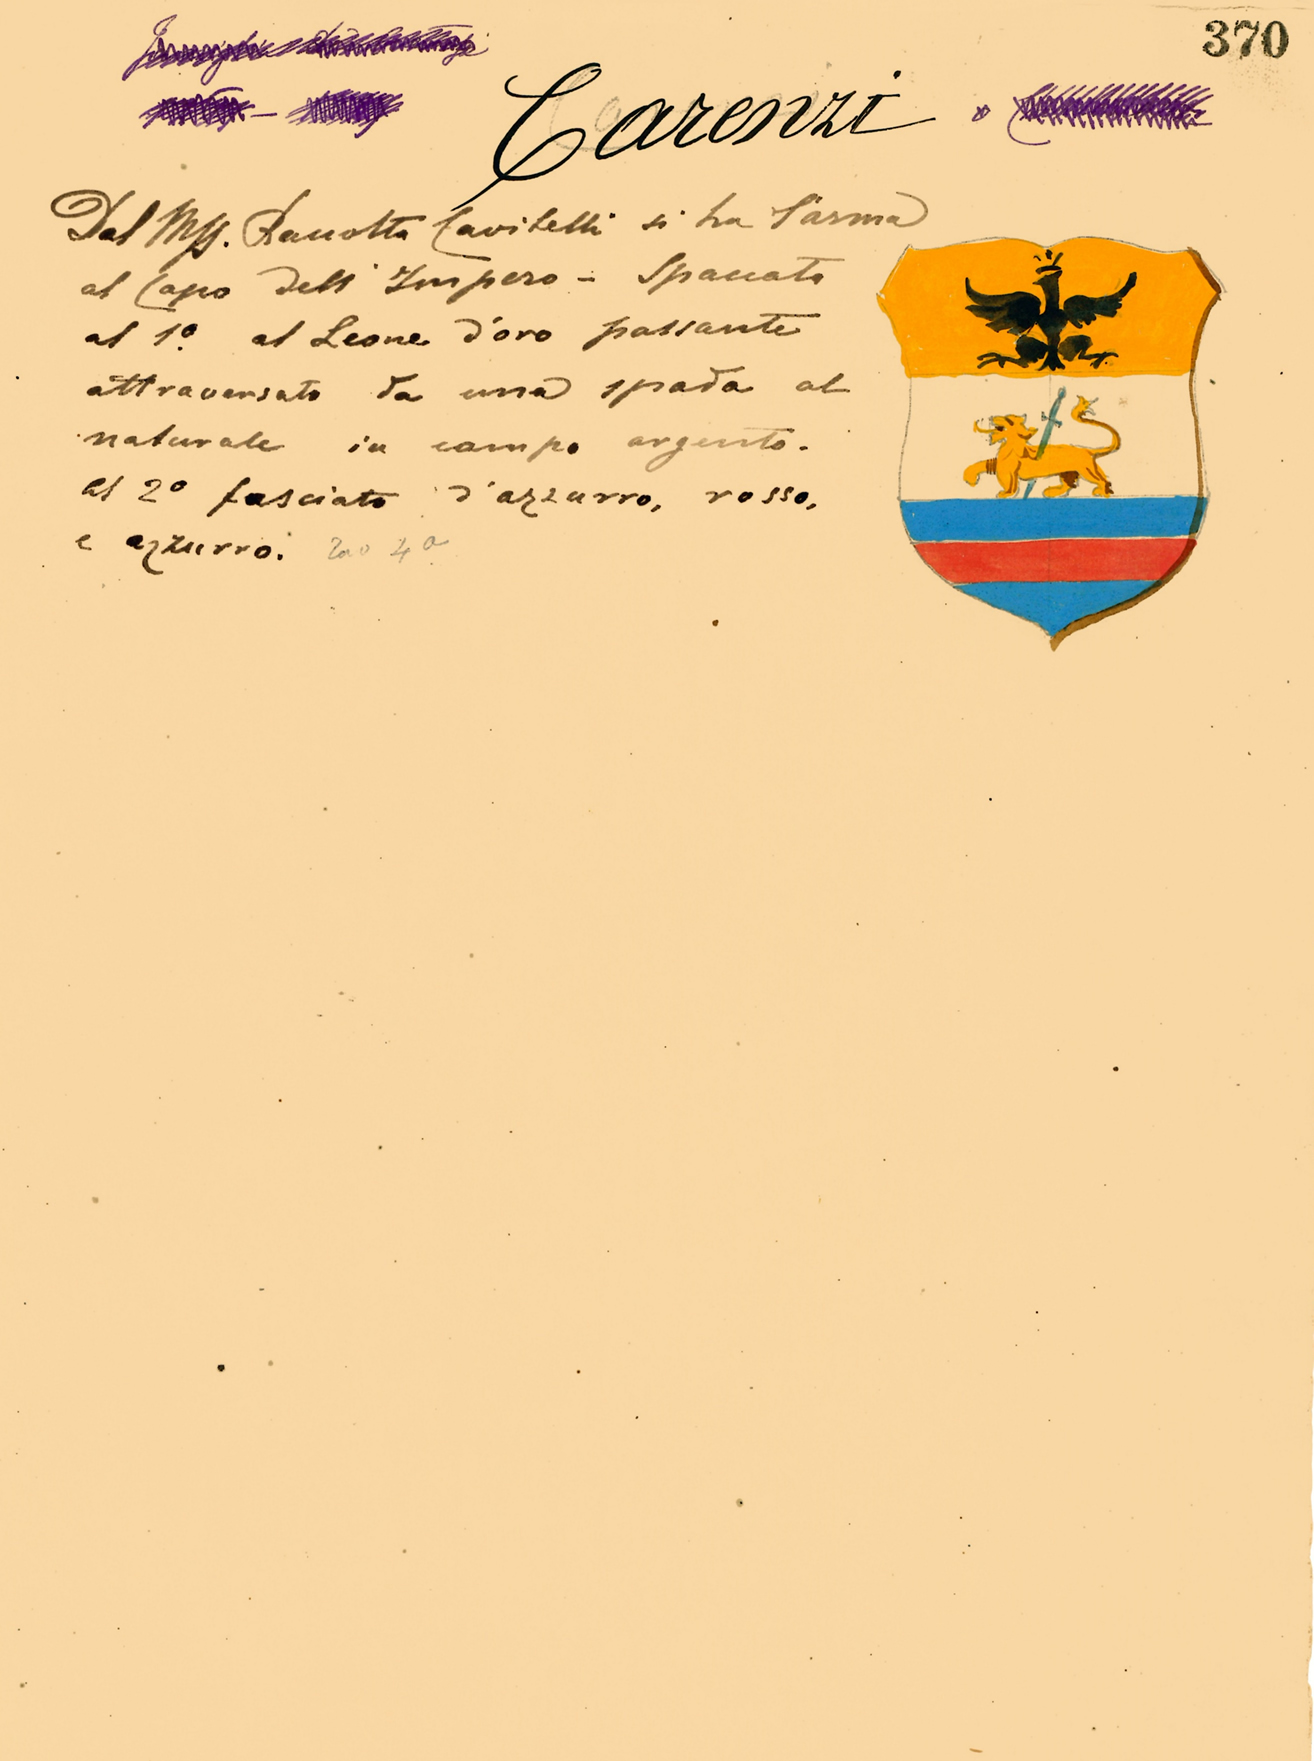 370
Carenzi
Dal Mss. Raccolta Cavitelli si ha l'arma
al Capo dell'Impero - Spaccato
al 1º al Leone d'oro passante
attraversato da una spada al
naturale in campo argento.
al 2º fasciato d'azzurro, rosso,
e azzurro.